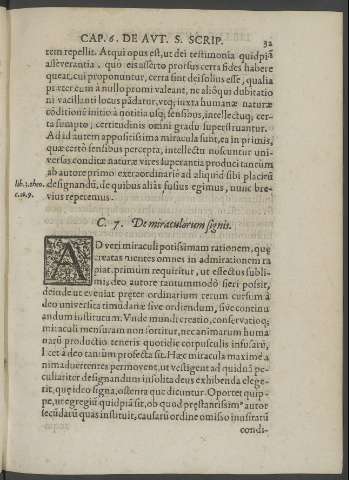 CAP. 6. DE AVT. S. SCRIP. 32
tem repellit. Atqui opus est, ut dei testimonia quidpiã
asseverantia, quò eis asserto prorsus certa fides habere
queat, cui proponuntur, certa sint dei solius esse, qualia
præter eum à nullo promi valeant, ne alióqui dubitatio
ni vacillanti locus pãdatur, utq; juxta humanæ naturæ
cõditionẽ initio à notitia usq; sensibus, intellectuq; cer-
ta sumpto; certitudinis omni gradu superstruantur.
Ad id autem appositissima miracula sunt, ea in primis,
quæ certò sensibus percepta, intellectu noscuntur uni-
versas conditæ naturæ vires superantia produci tantùm
ab autore primo extraordinario ad aliquid sibi placitũ
lib. 1. theo. designandũ, de quibus aliàs fusius egimus, nunc bre-
c. 16. 9. vius repetemus.
C. 7. De miraculorum signis.
AD veri miraculi potissimam rationem, quę
creatas mentes omnes in admirationem ra
piat, primum requiritur, ut effectus subli-
mis, deo autore tantummodò fieri possit,
deinde ut eveniat præter ordinarium rerum cursum à
deo universitati mũdanæ sive ordiendum, sive continu
andum institutum. Unde mundi creatio, conservatioq;
miraculi mensuram non sortitur, nec animarum huma
narũ productio teneris quotidie corpusculis infusarũ,
Licet à deo tantũm profecta sit. Hæc miracula maximè a
nimadvertentes permovent, ut vestigent ad quidnã pe-
culiariter designandum insolita deus exhibenda elege-
rit, quę ideo signa, ostenta quę dicuntur. Oportet quip-
pe, ut egregiũ quidpiã sit, ob quod pręstantissimꝰ autor
secũdarũ quas instituit, causarũ ordine omisso inusitatũ
condi-